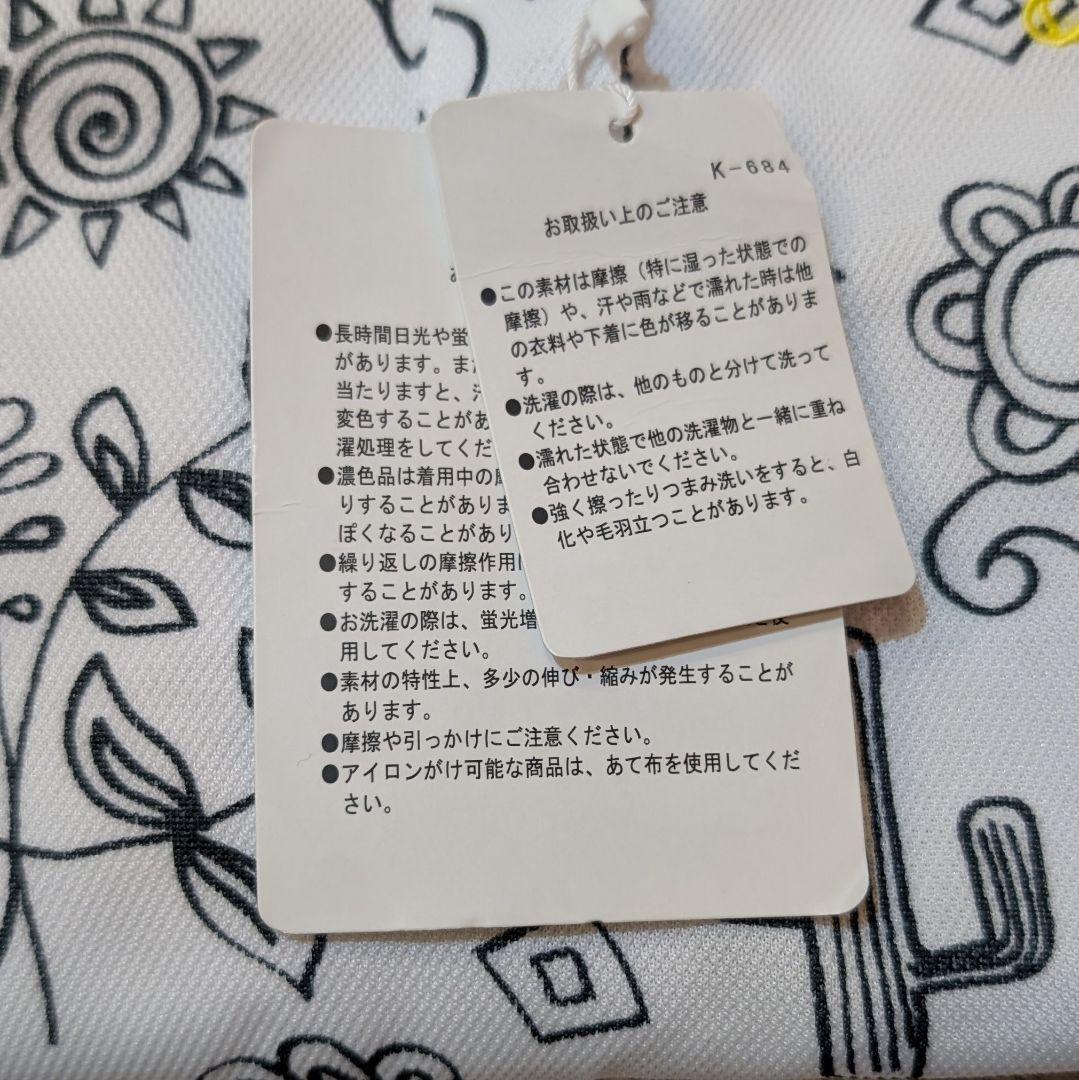 K-684
お取扱い上のご注意
●この素材は摩擦（特に湿った状態での
摩擦）や、汗や雨などで濡れた時は他
の衣料や下着に色が移ることがありま
す。
●洗濯の際は、他のものと分けて洗って
ください。
●濡れた状態で他の洗濯物と一緒に重ね
合わせないでください。
●強く擦ったりつまみ洗いをすると、白
化や毛羽立つことがあります。
●長時間日光や蛍
があります。また
当たりますと、汗
変色することがあ
濯処理をしてくだ
●濃色品は着用中の
りすることがありま
ぽくなることがあり
●繰り返しの摩擦作用
することがあります。
●お洗濯の際は、蛍光増
用してください。
●素材の特性上、多少の伸び・縮みが発生することが
あります。
●摩擦や引っかけにご注意ください。
●アイロンがけ可能な商品は、あて布を使用してくだ
さい。